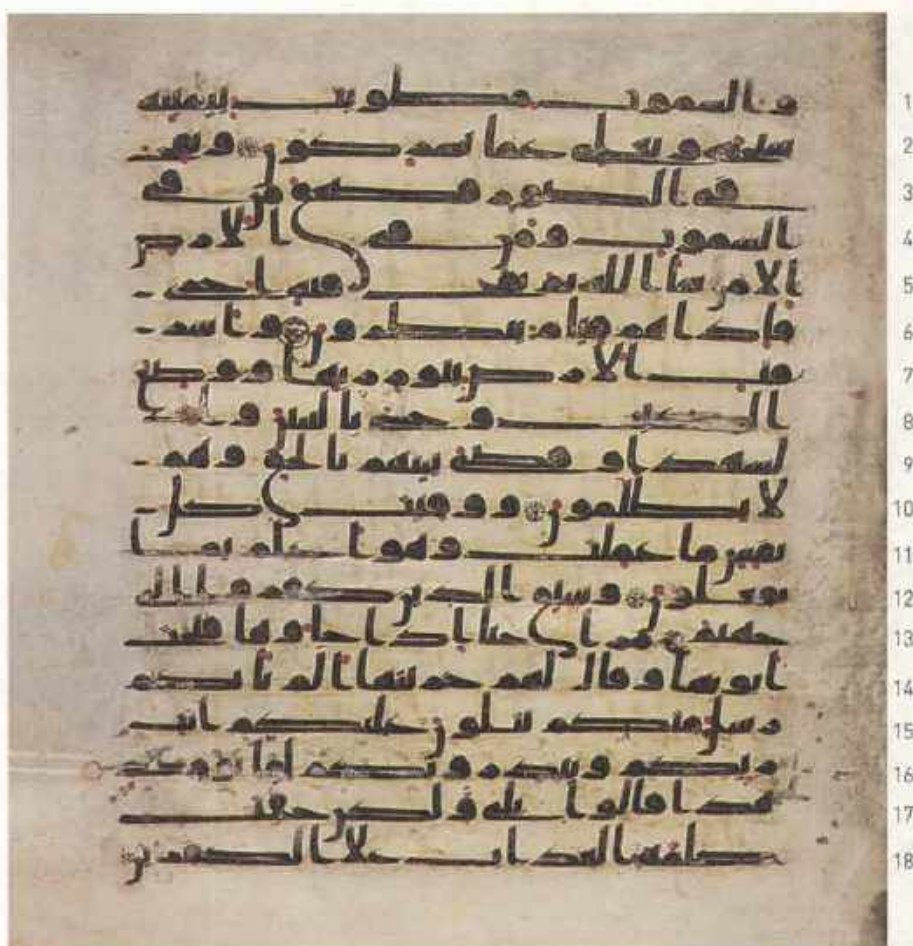 1 والسموت مطويت بيمينه
2 سبحنه وتعلى عما يشركون ونفخ
3 في الصور فصعق من في
4 السموت ومن في الارض
5 الا من شا الله ثم نفخ فيه اخرى
6 فاذا هم قيام ينظرون واشر
7 قت الارض بنور ربها ووضع
8 الكتب وجاى بالنبين وا
9 لشهدا وقضى بينهم بالحق وهم
10 لا يظلمون ووفيت كل
11 نفس ما عملت وهو اعلم بما
12 يفعلون وسيق الذين كفروا الى
13 جهنم زمرا حتى اذا جاوها فتحت
14 ابوبها وقال لهم خزنتها الم ياتكم
15 رسل منكم يتلون عليكم ايت
16 ربكم وينذرونكم لقا يومكم
17 هذا قالوا بلى ولكن حقت
18 كلمة العذاب على الكفرين